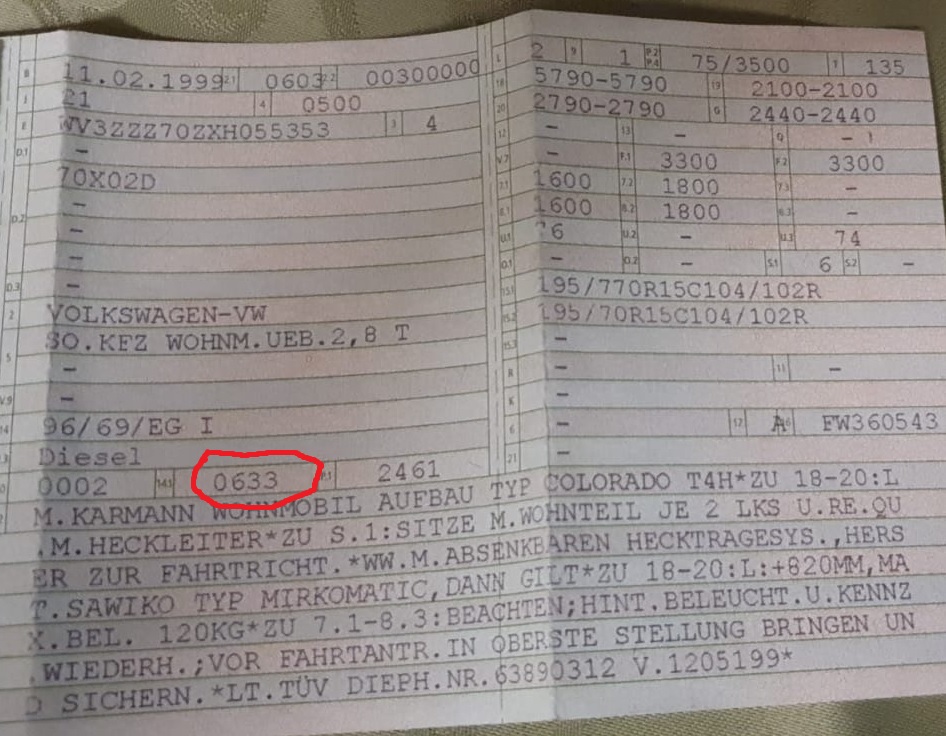 B 11.02.1999 2.1 0603 2.2 00300000
J 21 4 0500
E WV3ZZZ70ZXH055353 3 4
D.1 -
70X02D
D.2 -
-
-
D.3 -
2 VOLKSWAGEN-VW
SO.KFZ WOHNM.UEB.2,8 T
5 -
V.9 -
14 96/69/EG I
Diesel
0002 14.1 0633 P.1 2461
L 2 9 1 P.2 P.4 75/3500 T 135
18 5790-5790 19 2100-2100
20 2790-2790 G 2440-2440
12 - 13 - Q -
V.7 - F.1 3300 F.2 3300
7.1 1600 7.2 1800 7.3 -
8.1 1600 8.2 1800 8.3 -
U.1 76 U.2 - U.3 74
O.1 - O.2 - S.1 6 S.2 -
15.1 195/770R15C104/102R
15.2 195/70R15C104/102R
15.3 -
R - 11 -
K -
6 - 17 A 16 FW360543
21 -
M.KARMANN WOHNMOBIL AUFBAU TYP COLORADO T4H*ZU 18-20:L
.M.HECKLEITER*ZU S.1:SITZE M.WOHNTEIL JE 2 LKS U.RE.QU
ER ZUR FAHRTRICHT.*WW.M.ABSENKBAREN HECKTRAGESYS.,HERS
T.SAWIKO TYP MIRKOMATIC,DANN GILT*ZU 18-20:L:+820MM,MA
X.BEL. 120KG*ZU 7.1-8.3:BEACHTEN;HINT.BELEUCHT.U.KENNZ
.WIEDERH.;VOR FAHRTANTR.IN OBERSTE STELLUNG BRINGEN UN
D SICHERN.*LT.TÜV DIEPH.NR.63890312 V.1205199*